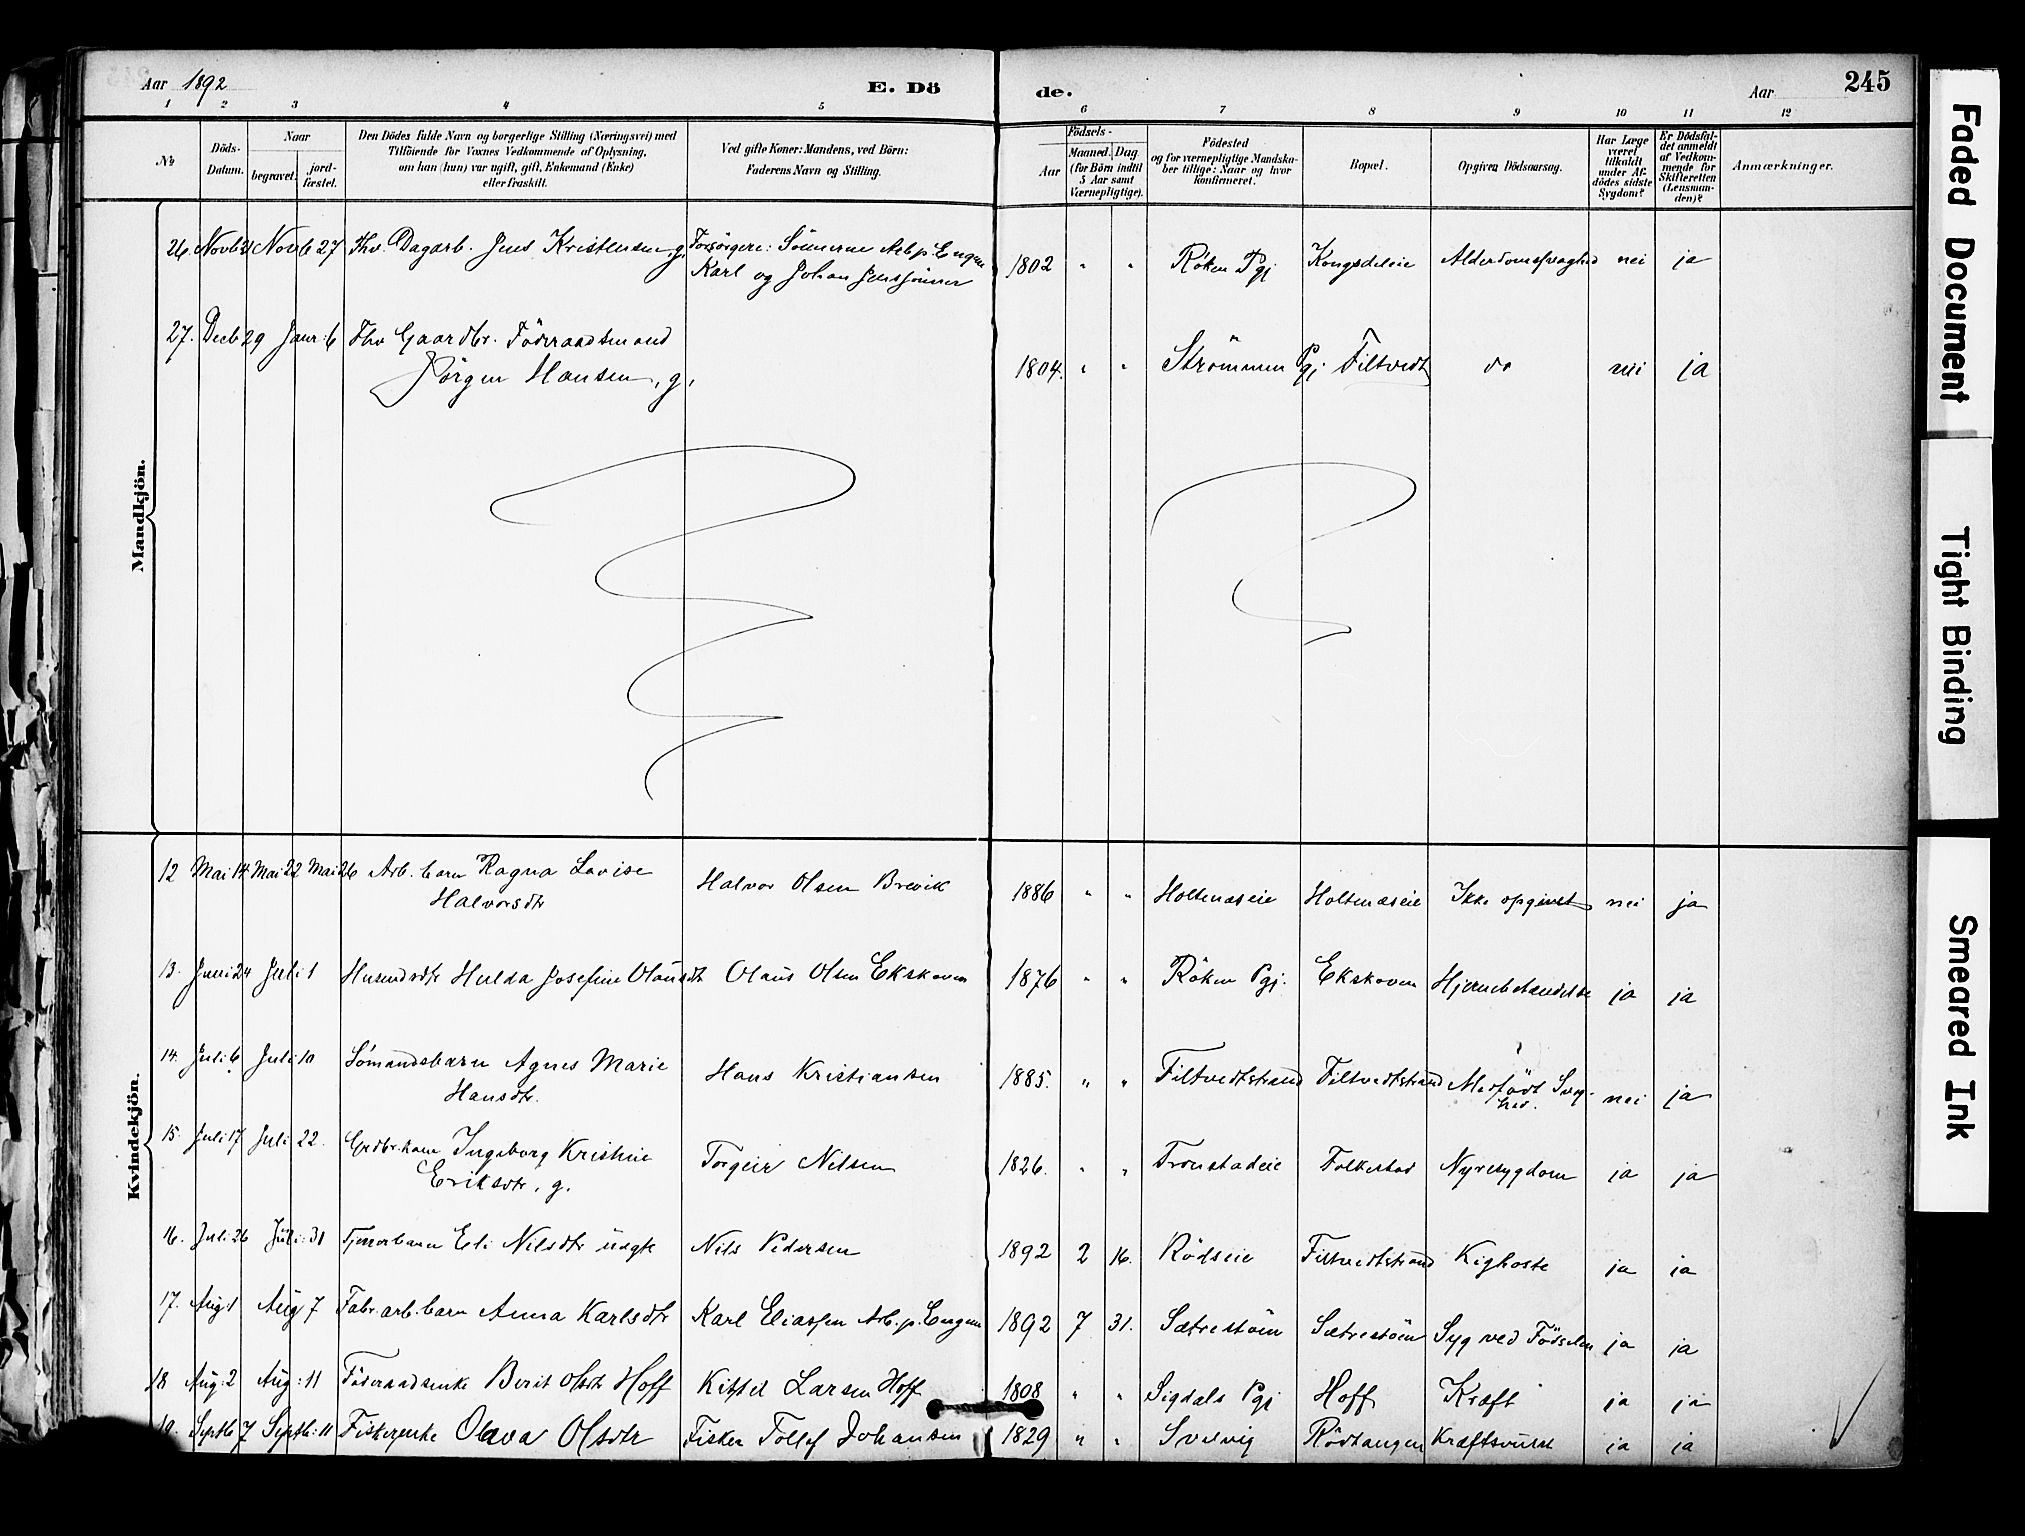 Aar 1892 E. Döde. Aar 245
1 2 3 4 5 6 7 8 9 10 11 12
No
Döds-Datum.
Naar
begravet.
jord-fæstet.
Den Dödes fulde Navn og borgerlige Stilling (Næringsvei) med
Tilföiende for Voxnes Vedkommende af Oplysning,
om han (hun) var ugift, gift, Enkemand (Enke)
eller fraskilt.
Ved gifte Koner: Mandens, ved Börn:
Faderens Navn og Stilling.
Födsels-
Aar
Maaned. Dag.
(for Börn indtil
5 Aar samt
Værnepligtige).
Födested
og for værnepligtige Mandska-
ber tillige: Naar og hvor
konfirmeret.
Bopæl.
Opgiven Dödsaarsag.
Har Læge
været
tilkaldt
under Af-
dödes sidste
Sygdom?
Er Dödsfal-
det anmeldt
af Vedkom-
mende for
Skifteretten
(Lensman-
den)?
Anmærkninger.
Mandkjön.
26. Novb 21 Novb 27 Fhv. Dagarb. Jens Kristensen, g. Forsörgere: Sönnerne Arb. p. Engene
Karl og Johan Jenssönner 1802 " " Röken Pgj Kongsdeleie Alderdomssvaghed nei ja
27. Decb 29 Janr: 6 Fhv Gaardbr. Föderaadsmand
Jörgen Hansen, g. 1804. " " Strömmen Pgj. Filtvedt do nei ja
Kvindekjön.
12 Mai 14 Mai 22 Mai 26 Arb. barn Ragna Lovise
Halvorsdtr Halvor Olsen Brevik 1886 " " Holtenæseie Holtenæseie Ikke opgivet nei ja
13. Juni 24 Juli 1 Husmdsdtr Hulda Josefine Olausdtr Olaus Olsen Ekskoven 1876 " " Röken Pgj. Ekskoven Hjernebetændelse ja ja
14. Juli 6 Juli 10 Sömandsbarn Agnes Marie
Hansdtr. Hans Kristiansen 1885. " " Filtvedtstrand Filtvedtstrand Medfödt Svag-
hed. nei ja
15. Juli 17 Juli 22. Grdbr.kone Ingeborg Kristine
Eriksdtr, g. Torgeir Nilsen 1826. " " Tronstadeie Folkestad Nyresygdom ja ja
16. Juli 26 Juli: 31 Eli Nilsdtr uægte Nils Pedersen 1892 2 16. Rödseie Filtvedtstrand Kighoste ja ja
17. Aug 1 Aug 7 Fabr. arb. barn Anna Karlsdtr Karl Eliassen Arb. p. Engene 1892 7 31. Sætrestöen Sætrestöen Syg ved Födselen ja ja
18 Aug: 2 Aug: 11 Föderaadsenke Berit Olsdtr Hoff Kittel Larsen Hoff 1808 " " Sigdals Pgj Hoff Kræft ja ja
19. Septb 7 Septb: 11 Fiskerenke Olava Olsdtr Fisker Tollef Johansen 1829 " " Svelvig Rödtangen Kræftsvulst ja ja
Faded Document
Tight Binding
Smeared Ink